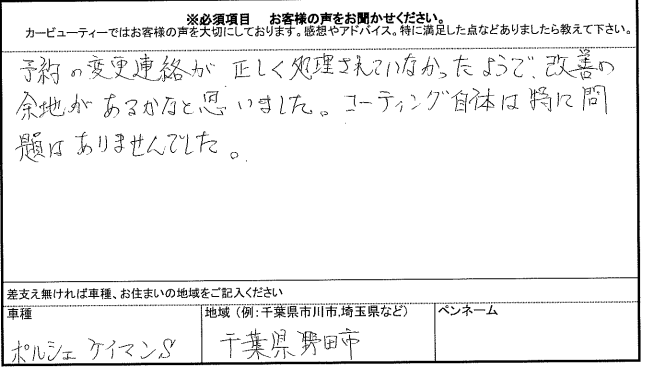 ※必須項目　お客様の声をお聞かせください。
カービューティーではお客様の声を大切にしております。感想やアドバイス。特に満足した点などありましたら教えて下さい。
予約の変更連絡が正しく処理されていなかったようで、改善の
余地があるかなと思いました。コーティング自体は特に問
題はありませんでした。
差支え無ければ車種、お住まいの地域をご記入ください
車種　地域（例：千葉県市川市,埼玉県など）　ペンネーム
ポルシェ ケイマンS　千葉県野田市